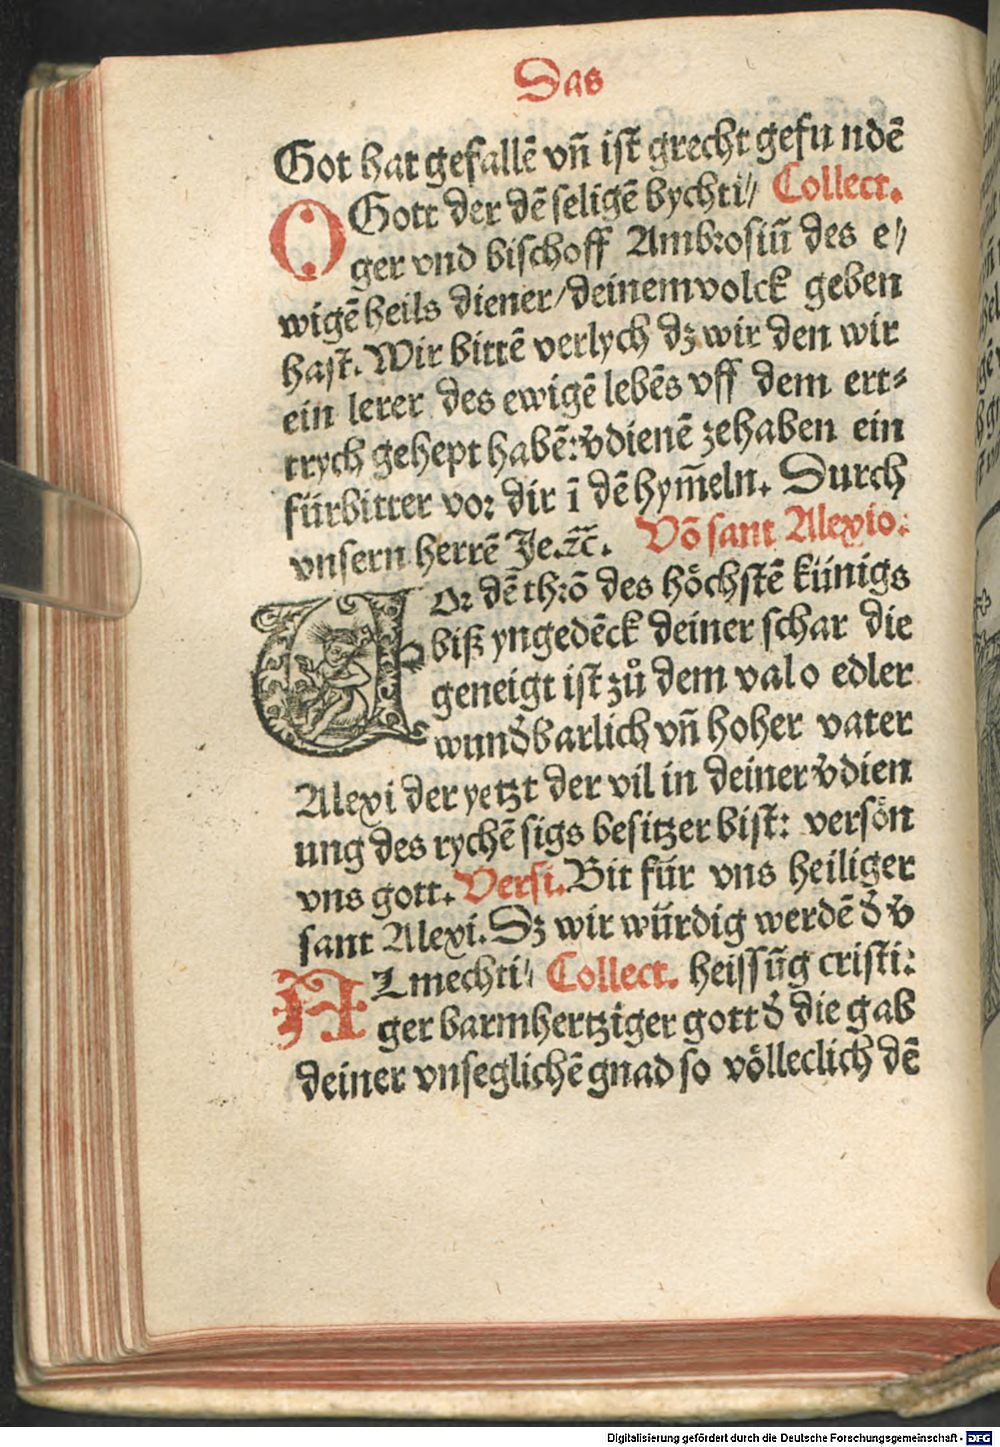 Das
Got hat gefallē vn̄ ist grecht gefundē
O Gott der dē seligē bychti⸗ Collect.
ger vnd bischoff Ambrosiū des e⸗
wigē heils diener/deinem volck geben
hast. Wir bittē verlych dz wir den wir
ein lerer des ewigē lebēs vff dem ert⸗
trych gehept habē: v̄dienē zehaben ein
fürbitter vor dir ī dē hym̄eln. Durch
vnsern herrē Je.⁊c̄. Vō sant Alexio.
Vor dē thrō des höchstē künigs
biß yngedēck deiner schar die
geneigt ist zů dem val o edler
wund̄barlich vn̄ hoher vater
Alexi der yetzt der vil in deiner v̄dien
ung des rychē sigs besitzer bist: versön
vns gott. Versi. Bit für vns heiliger
sant Alexi. Dz wir würdig werdē d̄ v̄
ALmechti⸗ Collect. heissūg cristi:
ger barmhertziger gott d̄ die gab
deiner vnseglichē gnad so völleclich dē
Digitalisierung gefördert durch die Deutsche Forschungsgemeinschaft - DFG